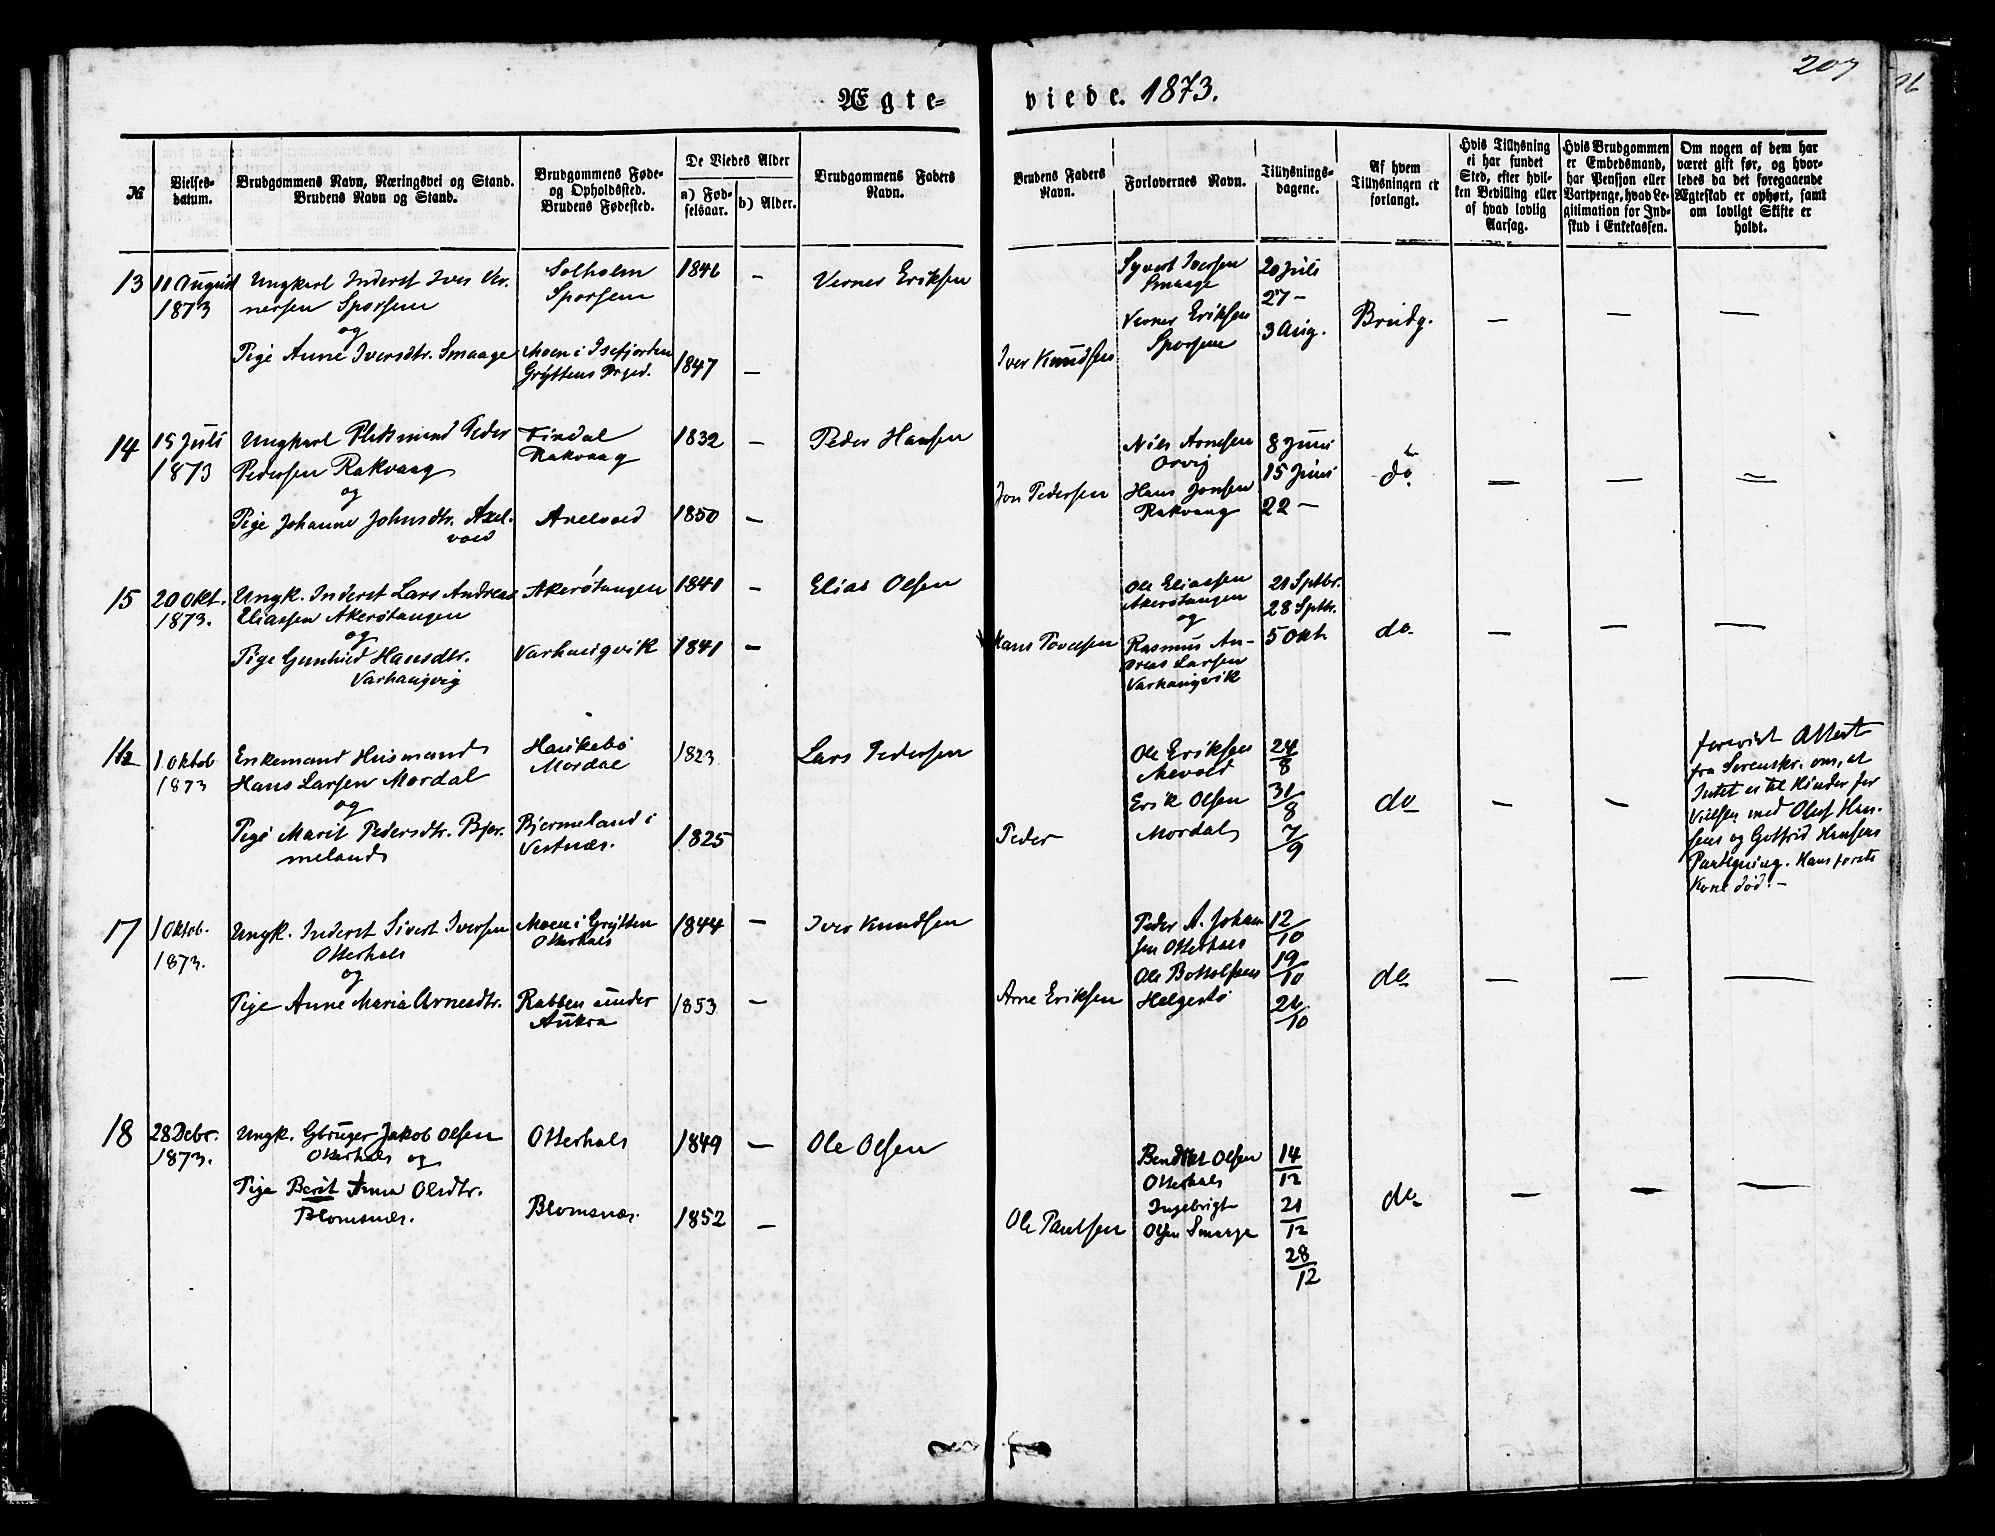 207
Ægte-
viede. 1873.
No
Vielses-
datum.
Brudgommens Navn, Næringsvei og Stand.
Brudens Navn og Stand.
Brudgommens Føde-
og Opholdssted.
Brudens Fødested.
De Viedes Alder
a) Fød-
selsaar.
b) Alder.
Brudgommens Faders
Navn.
Brudens Faders
Navn.
Forlovernes Navn.
Tillysnings-
dagene.
Af hvem
Tillysningen er
forlangt.
Hvis Tillysning
ei har fundet
Sted, efter hvil-
ken Bevilling eller
af hvad lovlig
Aarsag.
Hvis Brudgommen
er Embedsmand,
har Pension eller
Vartpenge, hvad Le-
gitimation for Ind-
skud i Enkekassen.
Om nogen af dem har
været gift før, og hvor-
ledes da det foregaaende
Ægteskab er ophørt, samt
om lovligt Skifte er
holdt.
13
11 August
1873
Ungkarl Inderst Iver Ver-
nersen Sporsem
og
Pige Anne Iversdtr. Smaage
Solholm
Sporsem
Moen i Isefjorden
Gryttens Prgjed.
1846 —
1847 —
Verner Eriksen
Iver Knudsen
Syvert Iversen
Smaage
Verner Eriksen
Sporsem
20 Juli
27 —
3 Aug.
Brudg.
— — —
14
15 Juli
1873
Ungkarl Pladsmand Peder
Pedersen Rakvaag
og
Pige Johanne Johnsdtr. Axel-
vold
Tindal
Rakvaag
Axelvold
1832 —
1850 —
Peder Hansen
Jon Pedersen
Niels Arnesen
Orvig
Hans Jonsen
Rakvaag
8 Juni
15 Juni
22 —
do
— — —
15
20 Okt.
1873.
Ungk. Inderst Lars Andreas
Eliassen Akerøtangen
og
Pige Gunhild Hansdtr.
Varhaugvig
Akerøtangen
Varhaugvik
1841 —
1841 —
Elias Olsen
Hans Tovelsen
Ole Eliassen
Akerøtangen
og
Rasmus An-
dreas Larsen
Varhaugvik
21 Sptbr.
28 Sptbr.
5 Okt.
do
— — —
16
1 Oktob
1873
Enkemand Husmand
Hans Larsen Mordal
og
Pige Marit Pedersdtr. Bjer-
meland
Haukebø
Mordal
Bjermeland i
Vestnæs.
1823
1825
Lars Pedersen
Peder
Ole Eriksen
Mevold
Erik Olsen
Mordal
24/8
31/8
7/9
do
— —
forevist Attest
fra Sorenskr. om, at
Intet er til Hinder for
Vielsen med Oluf Han-
sens og Gotfrid Hansens
Hans første
Kone død. —
17
1 Oktob.
1873.
Ungk. Inderst Sivert Iversen
Otterhals
og
Pige Anne Maria Arnesdtr.
Moen i Grytten
Otterhals
Rabben under
Aukra
1844 —
1853 —
Iver Knudsen
Arne Eriksen
Peder A. Johan
sen Otterhals
Ole Bottolfsen
Helgestø
12/10
19/10
26/10
do
— — —
18
28 Debr.
1873.
Ungk. Gbruger Jakob Olsen
Otterhals og
Pige Berit Anna Olsdtr.
Blomsnæs.
Otterhals
Blomsnæs.
1849 —
1852 —
Ole Olsen
Ole Paulsen
Bendikt Olsen
Otterhals
Ingebrigt
Olsen Smaage
14/12
21/12
28/12
do
— — —